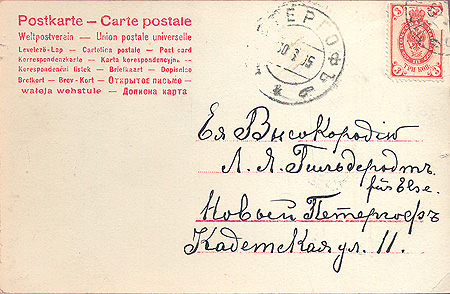 Postkarte — Carte postale
Weltpostverein — Union postale universelle
Levelező-Lap — Cartolina postale — Post card
Korrespondenzkarte — Karta korrespondencyjna
Korespondenční lístek — Briefkaart — Dopisnice
Brefkort — Brev-Kort — Открытое письмо
waleja wehstule — Дописна карта
ПЕТЕРГОФЪ
3 3
ТРИ КОП.
Ея Высокородію
Л. Я. Гильдеродтъ
für Else.
Новый Петергофъ
Кадетская ул. 11.